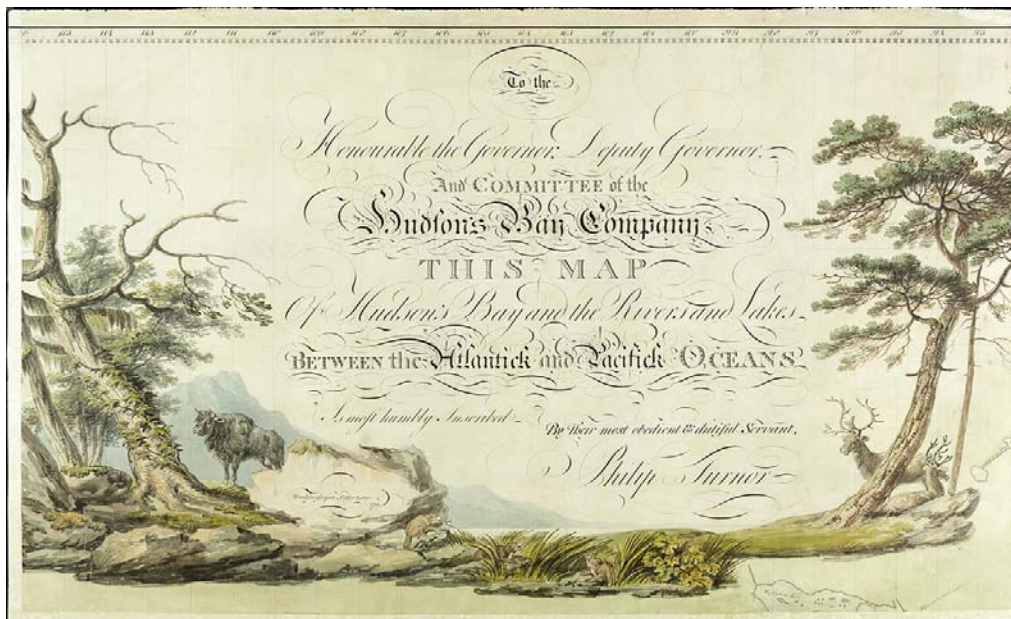 To the
Honourable the Governor, Deputy Governor,
And COMMITTEE of the
Hudson's Bay Company,
THIS MAP
Of Hudson's Bay and the Rivers and Lakes
BETWEEN the Atlantick and Pacifick OCEANS
Is most humbly Inscribed
By Their most obedient & dutiful Servant,
Philip Turnor